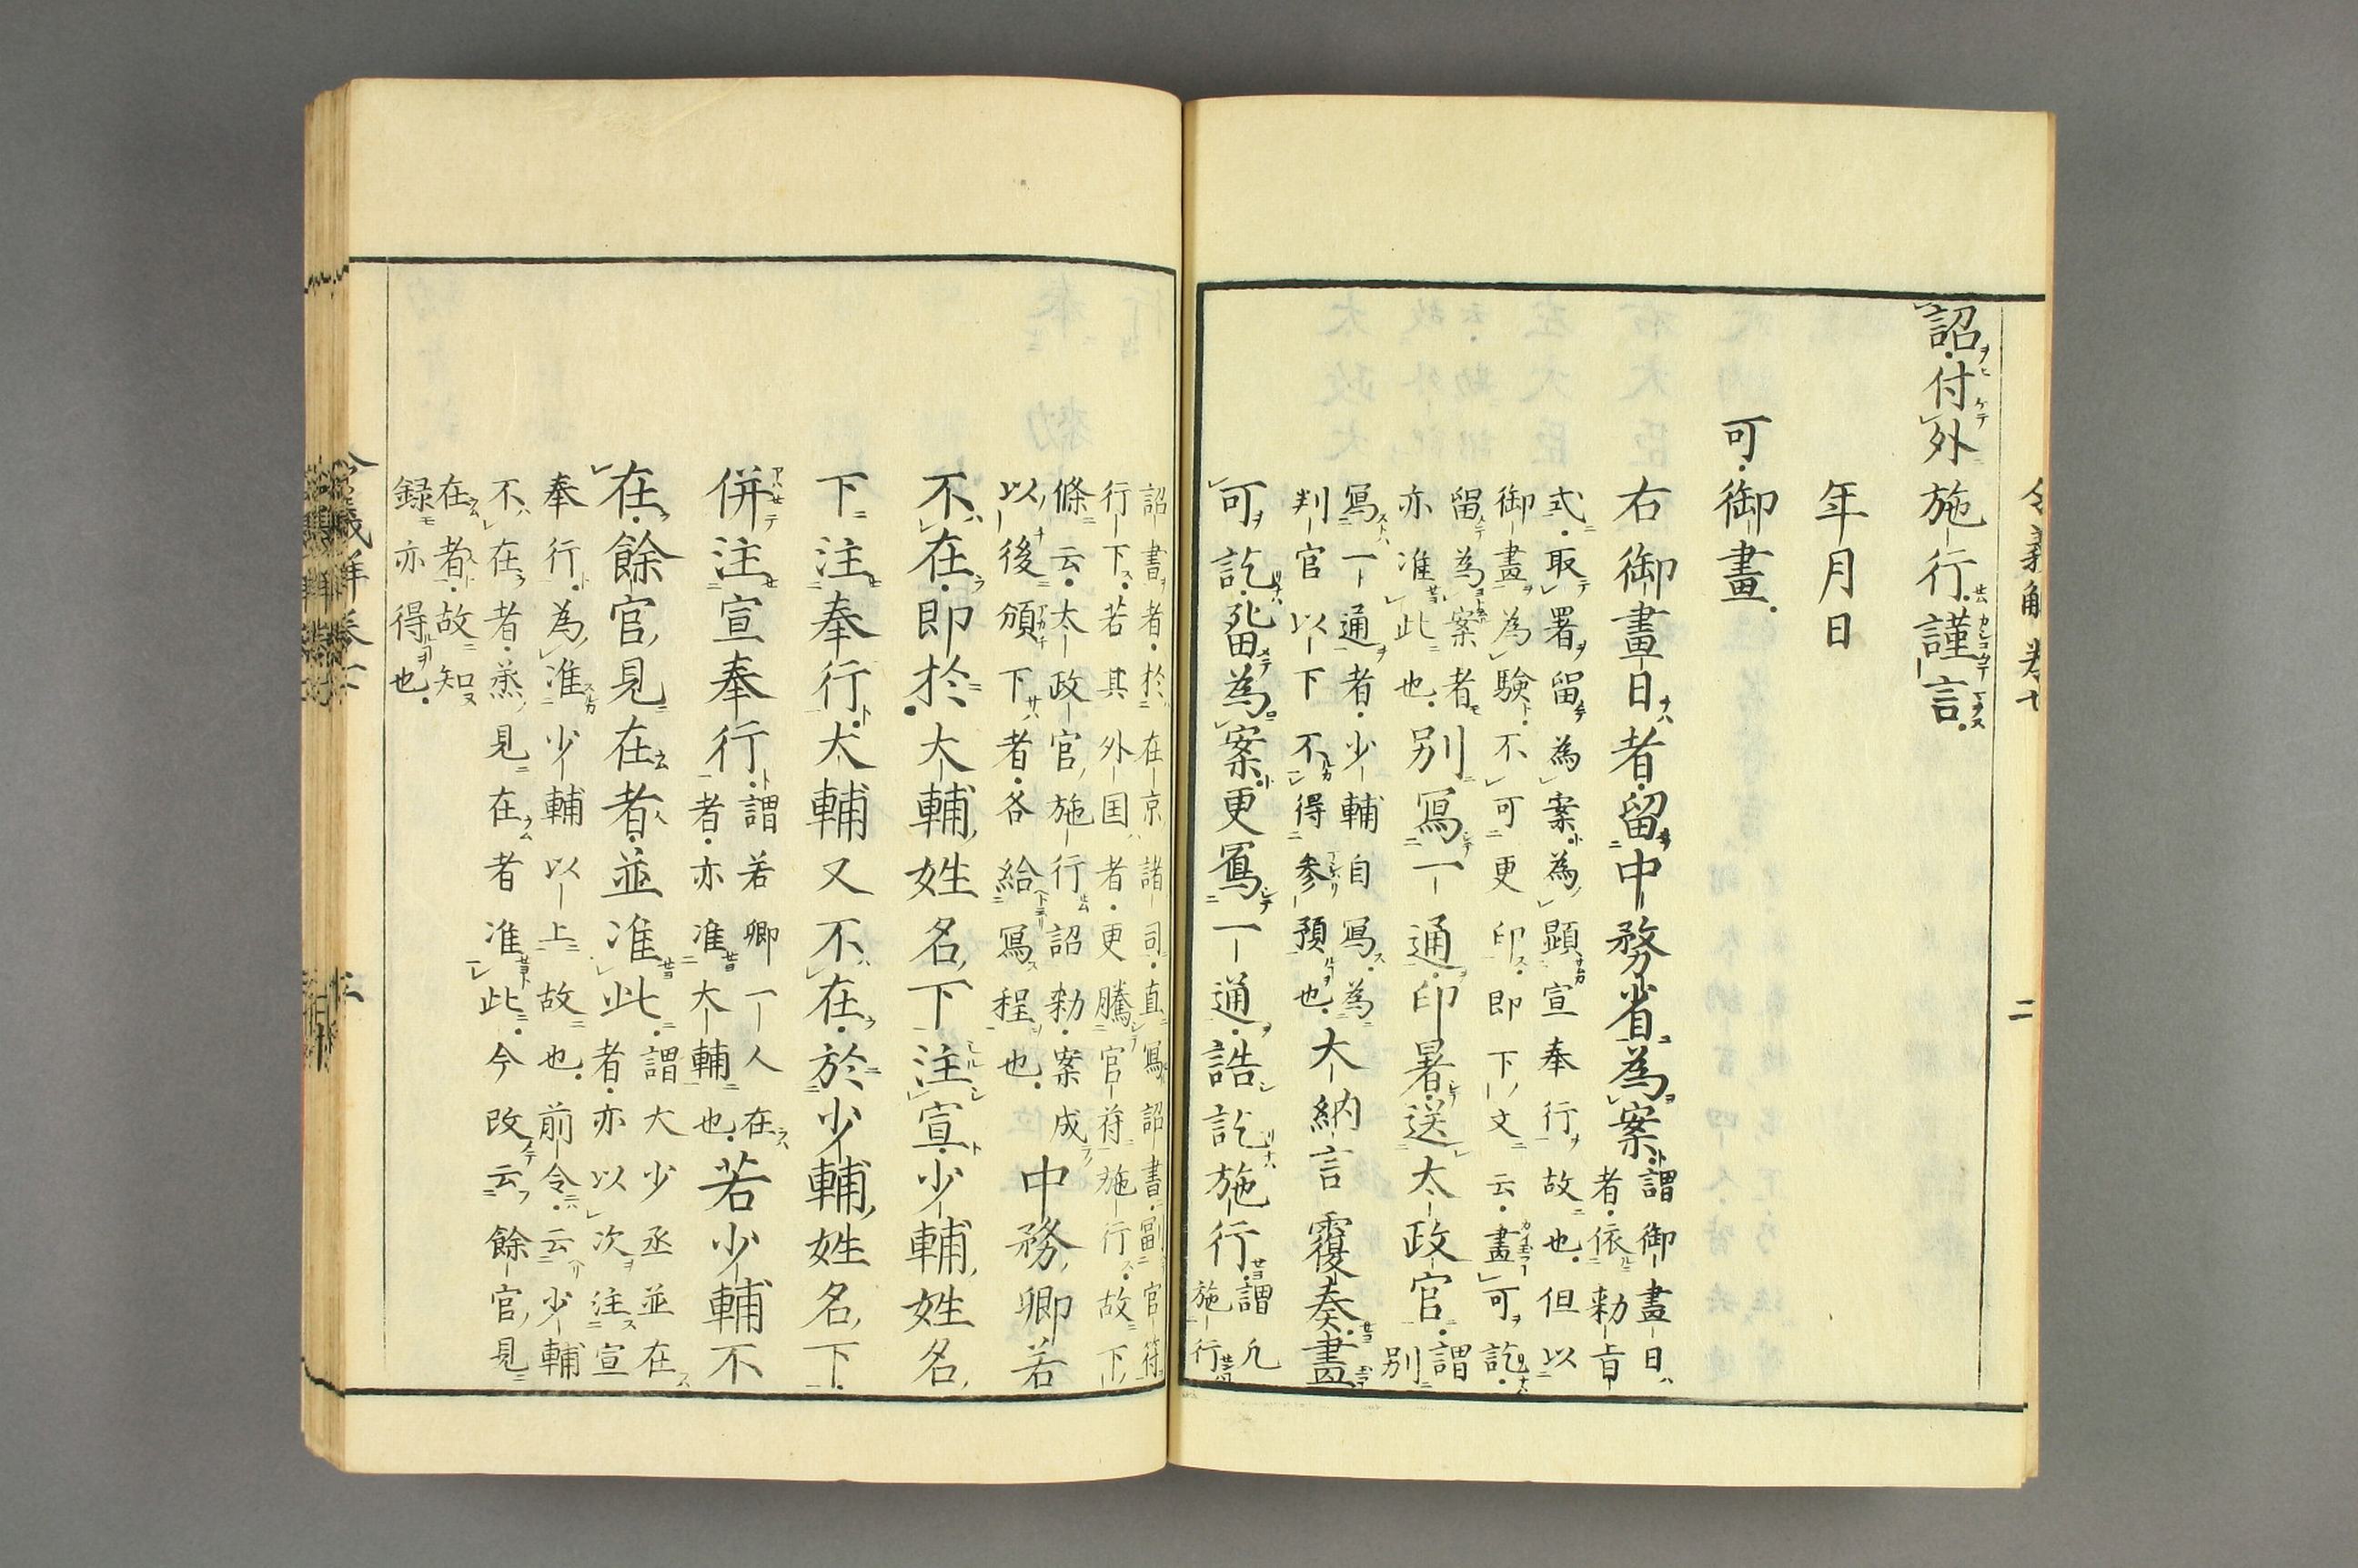 詔付外施行謹言
年月日
可御畫
右御畫日者留中務省為案謂御畫日
者依勅旨
式取署留為案為顕宣奉行故也但以
御畫為驗不可更印即下文云畫可訖
留為案者
亦准此也別寫一通印署送太政官謂
別
寫一通者少輔自寫為
判官以下不得参預也大納言覆奏畫
可訖留為案更寫一通誥訖施行謂凡
施行
詔書者於在京諸司直寫詔書副官符
行下若其外国者更騰官苻施行故下
條云太政官施行詔勅案成
以後頒下者各給寫程也中務卿若
不在即於大輔姓名下注宣少輔姓名
下注奉行大輔又不在於少輔姓名下
併注宣奉行謂若卿一人在
者亦准大輔也若少輔不
在餘官見在者並准此謂大少丞並在
者亦以次注宣
奉行為准少輔以上故也前令云少輔
不在者蒸見在者准此今改云餘官見
在者故知
録亦得也
令義解卷七
二